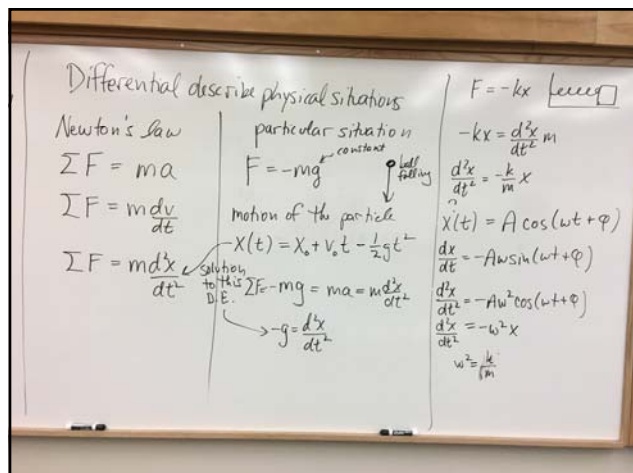 Differential describe physical situations
Newton's law
ΣF = ma
ΣF = m dv/dt
ΣF = m d²x/dt²
particular situation
F = -mg
constant
ball
falling
motion of the particle
x(t) = x₀ + v₀t - ½gt²
solution
to this
D.E.
ΣF = -mg = ma = m d²x/dt²
-g = d²x/dt²
F = -kx
-kx = d²x/dt² m
d²x/dt² = -k/m x
x(t) = A cos(wt + φ)
dx/dt = -Aw sin(wt + φ)
d²x/dt² = -Aw² cos(wt + φ)
d²x/dt² = -w² x
w² = k/m